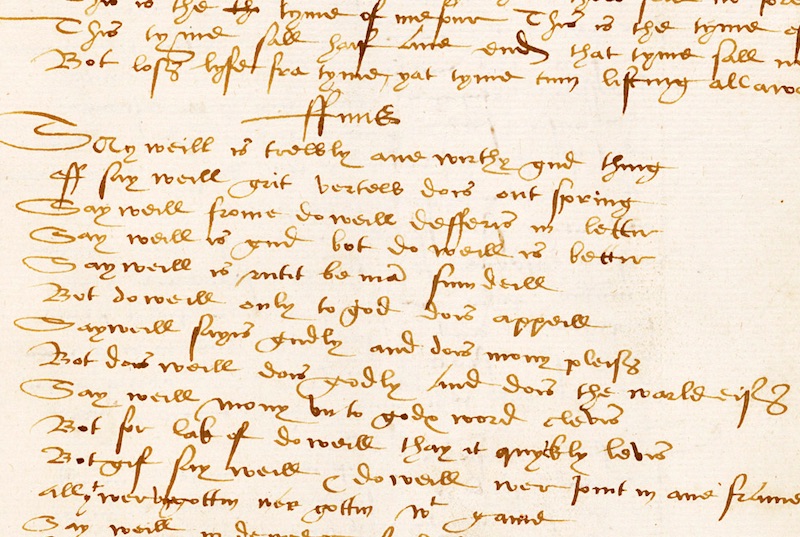 This is the tyme of mesour This is the tyme of
This tyme sall haif ane end that tyme sall
Bot loss lyfe fra tyme, yat tyme cum lesting all awa
ffinis
Say weill is trewly ane wirthy gud thing
Off say weill grit vertew dois out spring
Say weill frome do weill defferis in letter
Say weill is gud bot do weill is bettir
Say weill is rutit be mā sum deill
Bot do weill only to god dois appeill
Say weill sayis gudly and dois mony pleiss
Bot dois weill dois godly and dois the warld eiss
Say weill mony vn to godis word clevis
Bot for lak of do weill thay it quykly levis
Bot gif say weill & do weill wer Joint in ane frame
all wer gottin wt game
Say weill in